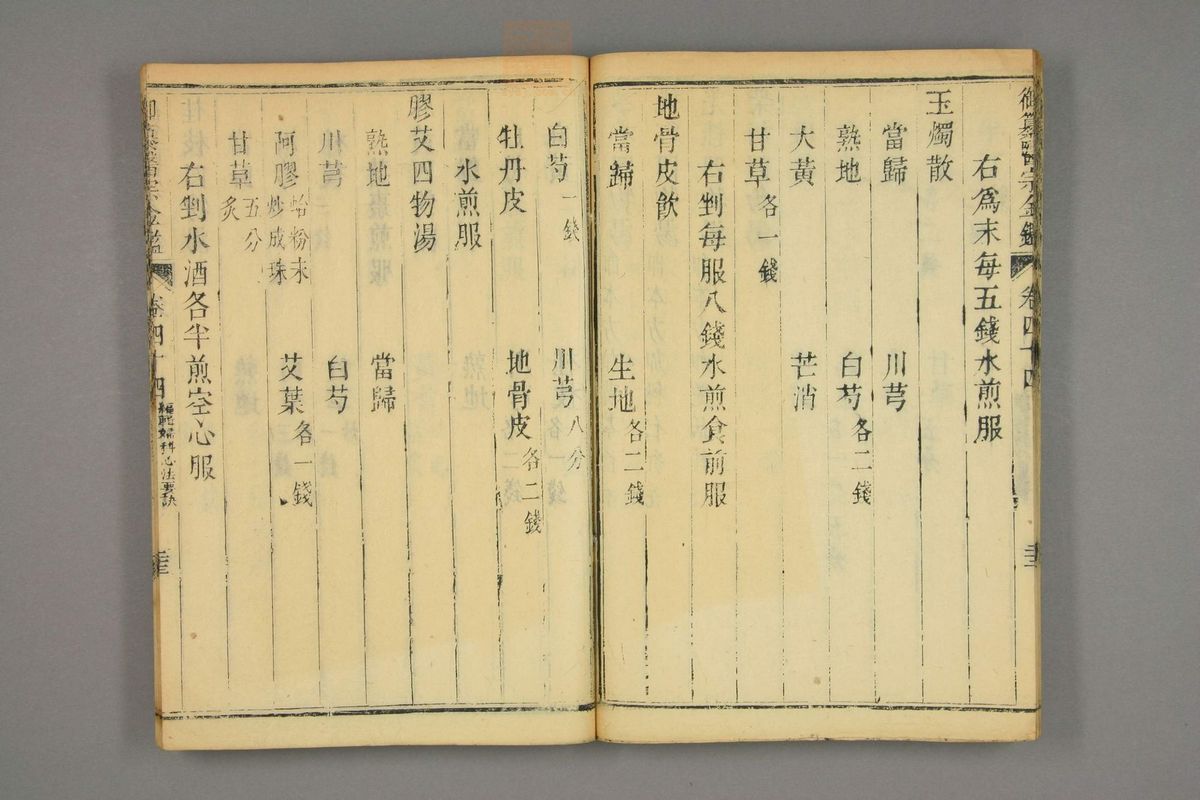 御纂醫宗金鑑 卷四十四
右爲末每五錢水煎服
玉燭散
當歸 川芎
熟地 白芍各二錢
大黃 芒消
甘草各一錢
右剉每服八錢水煎食前服
地骨皮飮
當歸 生地各二錢
白芍一錢 川芎八分
牡丹皮 地骨皮各二錢
水煎服
膠艾四物湯
熟地 當歸
川芎 白芍
阿膠蛤粉末炒成珠 艾葉各一錢
甘草五分炙
右剉水酒各半煎空心服
御纂醫宗金鑑 卷四十四 編輯婦科心法要訣